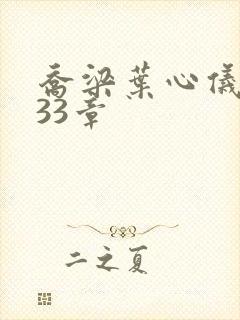 乔梁葉心儀
33章
二之夏